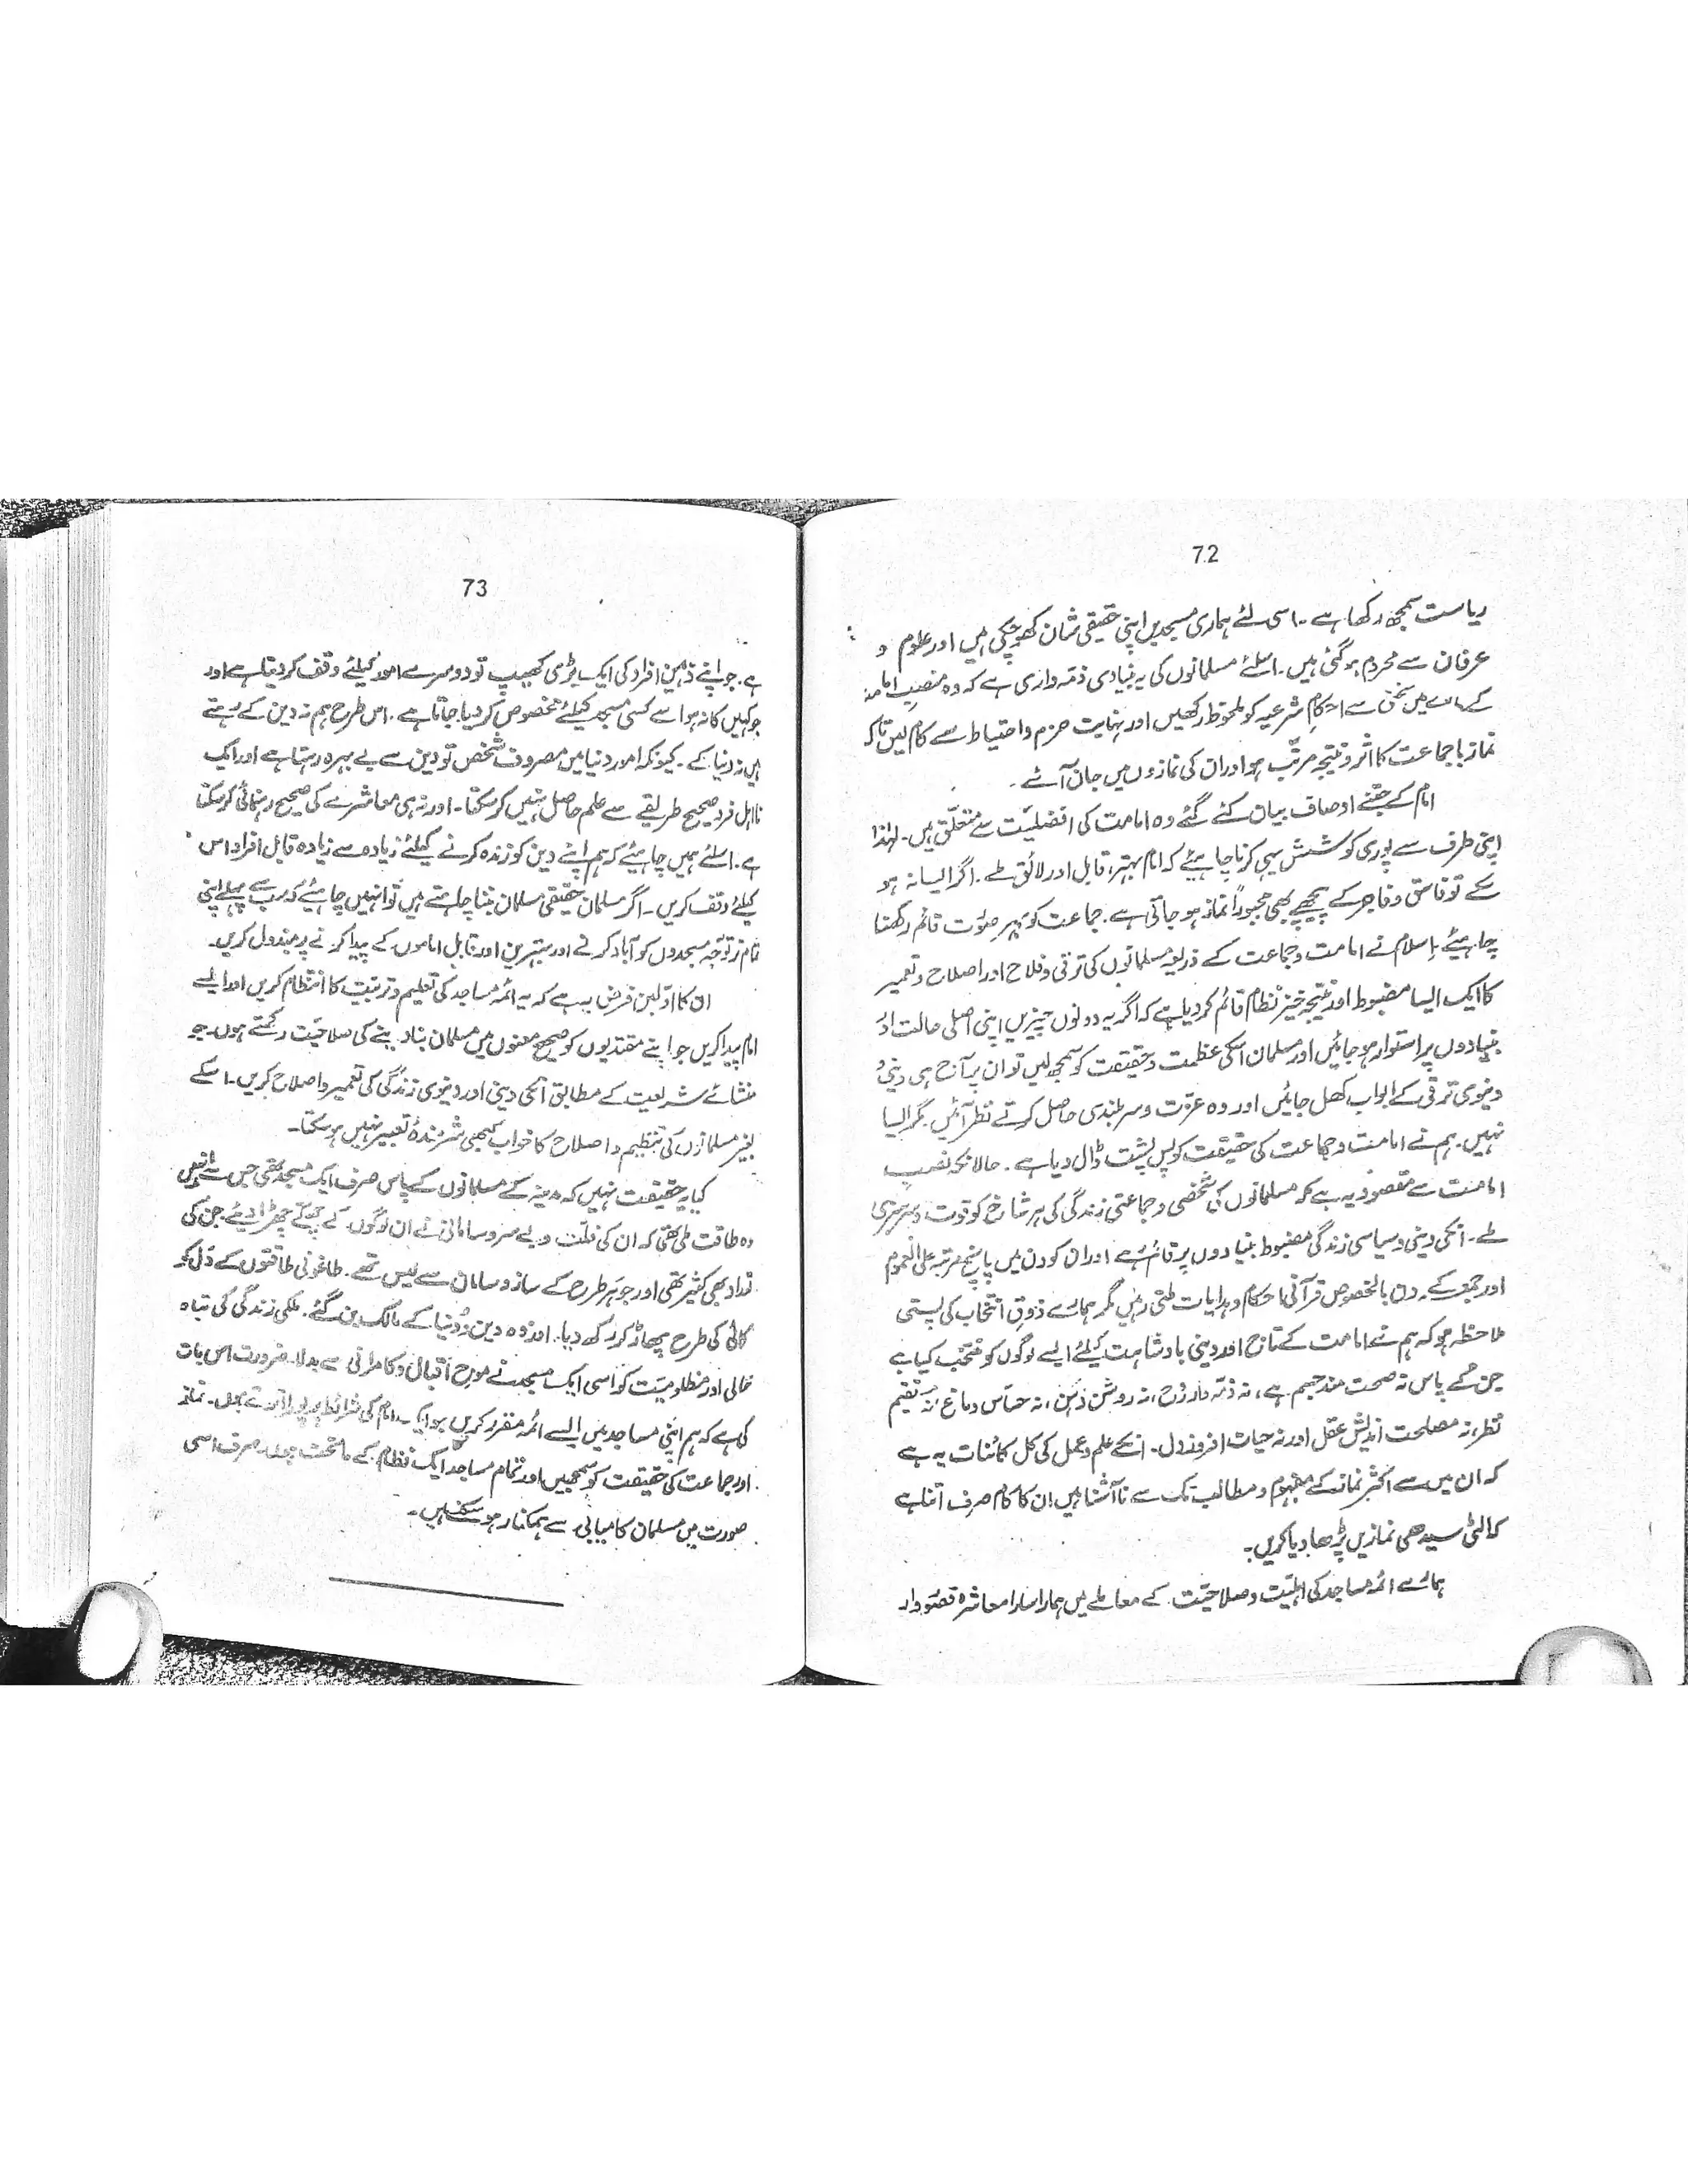 72
ریاست سمجھ رکھا ہے۔ اسی لئے ہماری مسجدیں اپنی حقیقی شان کھو چکی ہیں اور علوم و
عرفان سے محروم ہو گئی ہیں۔ اسلئے مسلمانوں کی یہ بنیادی ذمہ داری ہے کہ وہ منصبِ امامت
کے بارے میں سختی سے احکامِ شرعیہ کو ملحوظ رکھیں اور نہایت حزم و احتیاط سے کام لیں تاکہ
نماز با جماعت کا اثر و نتیجہ مرتب ہو اور ان کی نمازوں میں جان آئے۔
امام کے جتنے اوصاف بیان کئے گئے وہ امامت کی افضلیت سے متعلق ہیں۔ لہٰذا
اپنی طرف سے پوری کوشش یہی کرنا چاہیئے کہ امام بہتر، قابل اور لائق ملے۔ اگر ایسا نہ ہو
سکے تو فاسق و فاجر کے پیچھے بھی مجبوراً نماز ہو جاتی ہے۔ جماعت کو بہر صورت قائم رکھنا
چاہیئے۔ اسلام نے امامت و جماعت کے ذریعہ مسلمانوں کی ترقی و فلاح اور اصلاح و تعمیر
کا ایک ایسا مضبوط اور نتیجہ خیز نظام قائم کر دیا ہے کہ اگر یہ دونوں چیزیں اپنی اصلی حالت اور
بنیادوں پر استوار ہو جائیں اور مسلمان اسکی عظمت و حقیقت کو سمجھ لیں تو ان پر آج ہی دینی و
دنیوی ترقی کے ابواب کھل جائیں اور وہ عزت و سر بلندی حاصل کرتے نظر آئیں۔ مگر ایسا
نہیں۔ ہم نے امامت و جماعت کی حقیقت کو پس پشت ڈال دیا ہے۔ حالانکہ نصبِ
امامت سے مقصود یہ ہے کہ مسلمانوں کی شخصی و جماعتی زندگی کی ہر شاخ کو قوت و سرسبزی
ملے۔ انکی دینی و سیاسی زندگی مضبوط بنیادوں پر قائم رہے اور ان کو دن میں پانچ مرتبہ علی العموم
اور جمعہ کے دن بالخصوص قرآنی احکام و ہدایات ملتی رہیں مگر ہمارے ذوقِ انتخاب کی پستی
ملاحظہ ہو کہ ہم نے امامت کے تاج اور دینی بادشاہت کیلئے ایسے لوگوں کو منتخب کیا ہے
جن کے پاس نہ صحت مند جسم ہے، نہ ذمہ دار روح، نہ روشن ذہن، نہ حساس دماغ، نہ
نظر، نہ مصلحت اندیش عقل اور نہ حیات افروز دل۔ انکے علم و عمل کی کل کائنات یہ ہے
کہ ان میں سے اکثر نماز کے مفہوم و مطالب تک سے نا آشنا ہیں۔ ان کا کام صرف اتنا ہے
کہ الٹی سیدھی نمازیں پڑھا دیا کریں۔
ہمارے ائمہ مساجد کی اہلیت و صلاحیت کے معاملے میں ہمارا سارا معاشرہ قصوروار
73
ہے۔ جو اپنے ذہین افراد کی ایک بڑی کھیپ تو دوسرے امور کیلئے وقف کر دیتا ہے اور
جو کہیں کا نہ ہو اسے کسی مسجد کیلئے مخصوص کر دیا جاتا ہے۔ اس طرح ہم نہ دین کے رہتے
ہیں نہ دنیا کے۔ کیونکہ امور دنیا میں مصروف شخص تو دین سے بے بہرہ رہتا ہے اور ایک
نا اہل فرد صحیح طریقے سے علم حاصل نہیں کر سکتا۔ اور نہ ہی معاشرے کی صحیح رہنمائی کر سکتا
ہے۔ اسلئے ہمیں چاہیئے کہ ہم اپنے دین کو زندہ کرنے کیلئے زیادہ سے زیادہ قابل افراد اس
کیلئے وقف کریں۔ اگر مسلمان حقیقی مسلمان بننا چاہتے ہیں تو انہیں چاہیئے کہ سب سے پہلے اپنی
تمام تر توجہ مسجدوں کو آباد کرنے اور بہترین اور قابل اماموں کے پیدا کرنے پر مبذول کریں۔
ان کا اولین فرض یہ ہے کہ یہ ائمہ مساجد کی تعلیم و تربیت کا انتظام کریں اور ایسے
امام پیدا کریں جو اپنے مقتدیوں کو صحیح معنوں میں مسلمان بنا دینے کی صلاحیت رکھتے ہوں۔ جو
منشائے شریعت کے مطابق انکی دینی اور دنیوی زندگی کی تعمیر و اصلاح کریں۔ اسکے
بغیر مسلمانوں کی تنظیم و اصلاح کا خواب کبھی شرمندۂ تعبیر نہیں ہو سکتا۔
کیا یہ حقیقت نہیں کہ مدینہ کے مسلمانوں کے پاس صرف ایک مسجد تھی جس سے انہیں
وہ طاقت ملی تھی کہ ان کی قلت و بے سر و سامانی نے ان لوگوں کے چھکے چھڑا دیئے جن کی
تعداد بھی کثیر تھی اور جو ہر طرح کے ساز و سامان سے لیس تھے۔ طاغوتی طاقتوں کے دَل کو
کائی کی طرح پھاڑ کر رکھ دیا۔ اور وہ دین و دنیا کے مالک بن گئے۔ ملکی زندگی کی تباہ
حالی اور مظلومیت کو اسی ایک مسجد نے موجِ اقبال و کامرانی سے بدلا۔ ضرورت اس بات
کی ہے کہ ہم اپنی مساجد میں ایسے ائمہ مقرر کریں جو ایک امام کی شرائط پر پورا اترتے ہوں۔ نماز
اور جماعت کی حقیقت کو سمجھیں اور تمام مساجد ایک نظام کے ماتحت ہوں۔ صرف اسی
صورت میں مسلمان کامیابی سے ہمکنار ہو سکتے ہیں۔